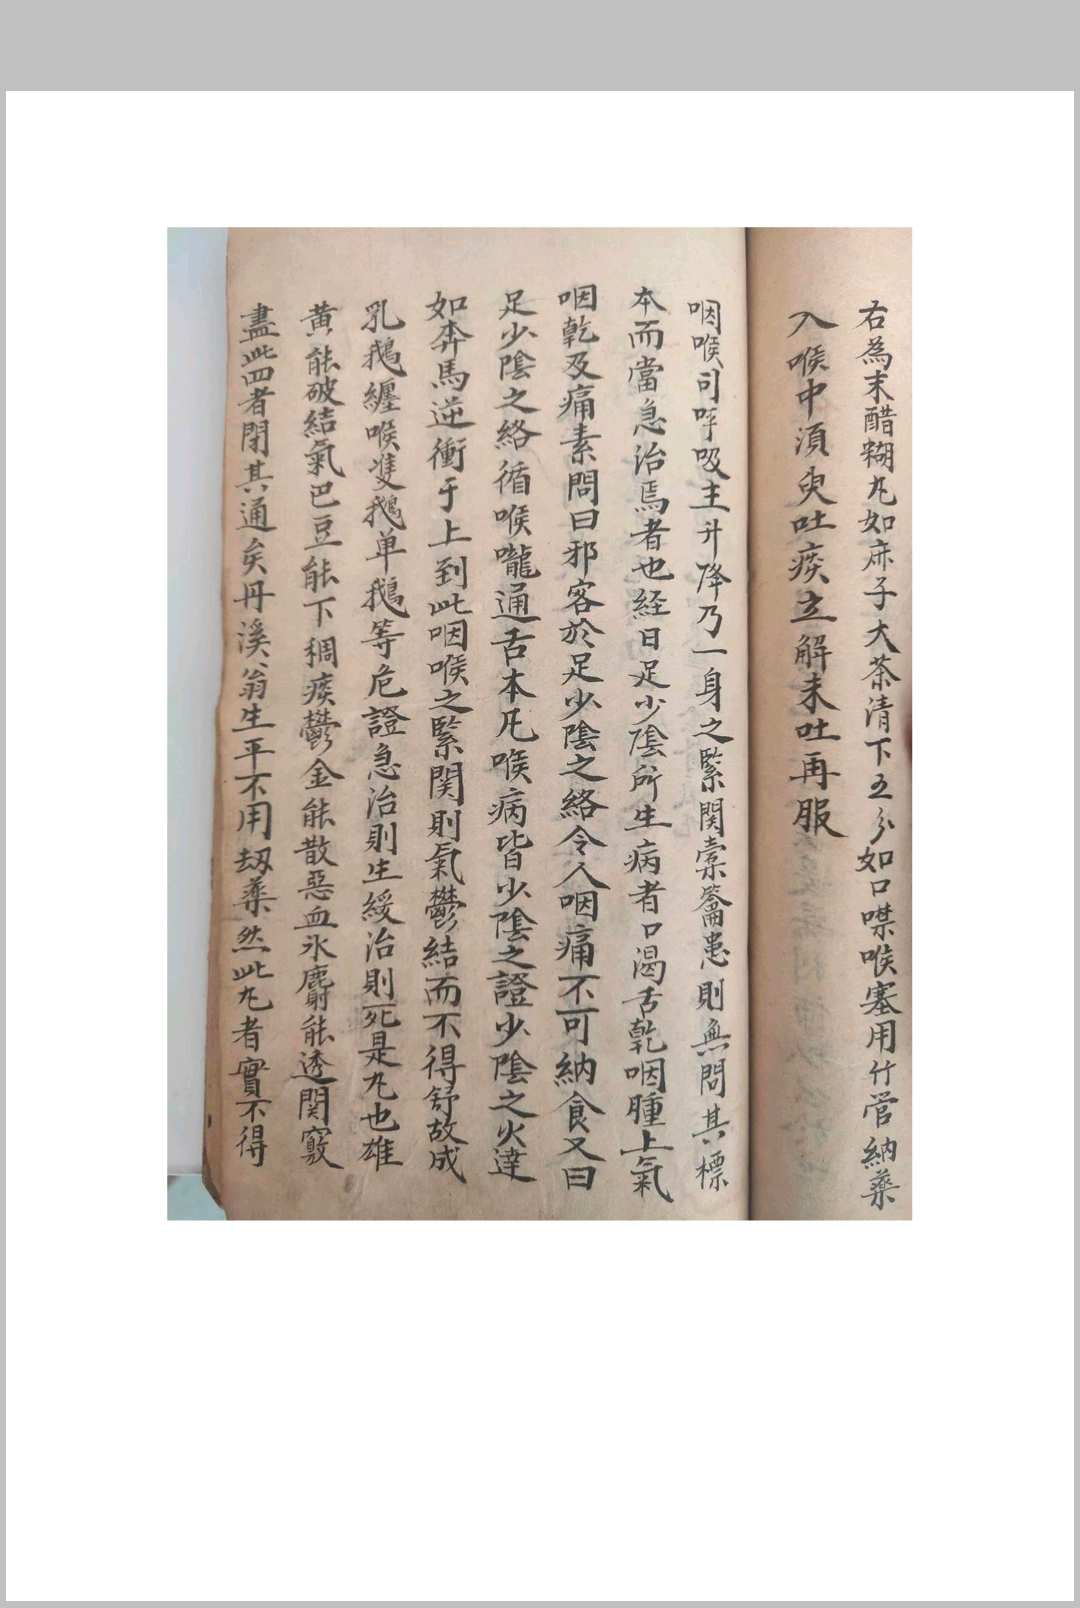 右為末醋糊丸如麻子大茶清下五分如口噤喉塞用竹管納藥
入喉中須臾吐痰立解未吐再服
咽喉司呼吸主升降乃一身之緊関橐籥患則無問其標
本而當急治焉者也経曰足少陰所生病者口渴舌乾咽腫上氣
咽乾及痛素問曰邪客於足少陰之絡令人咽痛不可納食又曰
足少陰之絡循喉嚨通舌本凡喉病皆少陰之證少陰之火逹
如奔馬逆衝于上到此咽喉之緊関則氣鬱結而不得舒故成
乳鵝纏喉雙鵝单鵝等危證急治則生緩治則死是丸也雄
黃能破結氣巴豆能下稠痰鬱金能散惡血氷麝能透関竅
盡此四者閉其通矣丹溪翁生平不用刼藥然此丸者實不得